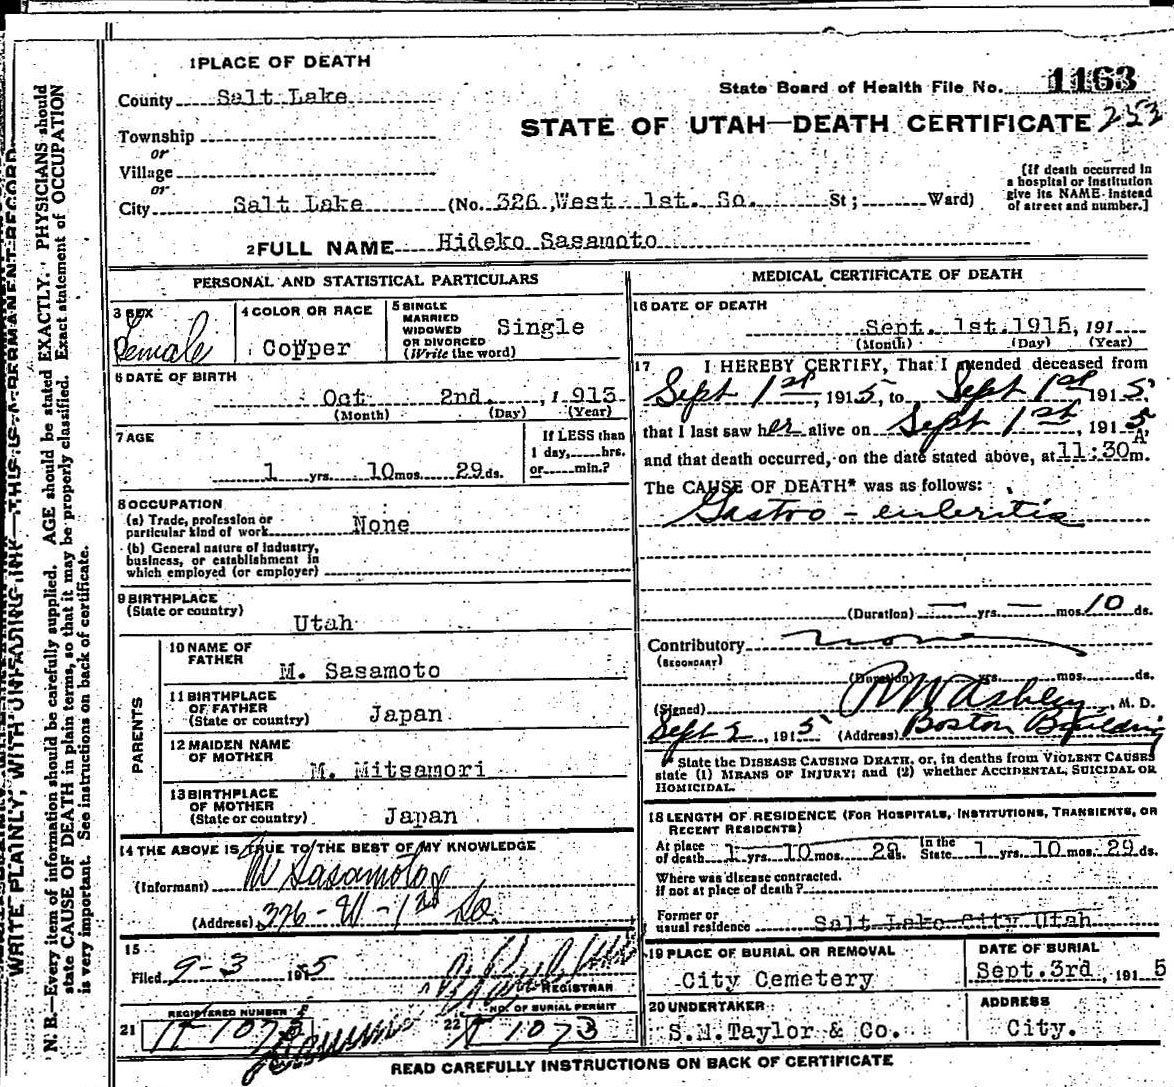 1 PLACE OF DEATH
County Salt Lake
State Board of Health File No. 1163
STATE OF UTAH—DEATH CERTIFICATE 253
Township
or
Village
or
City Salt Lake (No. 326 West 1st. So. St; Ward)
[If death occurred in a hospital or institution give its NAME instead of street and number.]
2 FULL NAME Hideko Sasamoto
PERSONAL AND STATISTICAL PARTICULARS
3 SEX
Female
4 COLOR OR RACE
Copper
5 SINGLE
MARRIED
WIDOWED
OR DIVORCED
(Write the word)
Single
6 DATE OF BIRTH
Oct 2nd. , 1 913
(Month) (Day) (Year)
7 AGE
1 yrs. 10 mos. 29 ds.
If LESS than
1 day, hrs.
or min.?
8 OCCUPATION
(a) Trade, profession or
particular kind of work None
(b) General nature of industry,
business, or establishment in
which employed (or employer)
9 BIRTHPLACE
(State or country)
Utah
PARENTS
10 NAME OF
FATHER
M. Sasamoto
11 BIRTHPLACE
OF FATHER
(State or country) Japan
12 MAIDEN NAME
OF MOTHER
M. Mitsamori
13 BIRTHPLACE
OF MOTHER
(State or country) Japan
14 THE ABOVE IS TRUE TO THE BEST OF MY KNOWLEDGE
(Informant) M Sasamoto
(Address) 326 - W - 1st So.
15
Filed 9-3 1915
REGISTRAR
REGISTERED NUMBER
21
NO. OF BURIAL PERMIT
22 1073
MEDICAL CERTIFICATE OF DEATH
16 DATE OF DEATH
Sept. 1st.1915, 191
(Month) (Day) (Year)
17 I HEREBY CERTIFY, That I attended deceased from
Sept 1st, 1915, to Sept 1st 1915,
that I last saw her alive on Sept 1st, 1915,
and that death occurred, on the date stated above, at 11:30 A m.
The CAUSE OF DEATH* was as follows:
Gastro-enteritis
(Duration) — yrs. — mos. 10 ds.
Contributory none
(SECONDARY)
(Duration) yrs. mos. ds.
(Signed) R W Ashley, M. D.
Sept 2, 1915 (Address) Boston Building
* State the DISEASE CAUSING DEATH, or, in deaths from VIOLENT CAUSES
state (1) MEANS OF INJURY; and (2) whether ACCIDENTAL, SUICIDAL OR
HOMICIDAL.
18 LENGTH OF RESIDENCE (FOR HOSPITALS, INSTITUTIONS, TRANSIENTS, OR
RECENT RESIDENTS)
At place
of death 1 yrs. 10 mos. 29 ds. In the State 1 yrs. 10 mos. 29 ds.
Where was disease contracted.
if not at place of death?
Former or
usual residence Salt Lake City Utah
19 PLACE OF BURIAL OR REMOVAL
City Cemetery
DATE OF BURIAL
Sept.3rd , 191 5
20 UNDERTAKER
S.M.Taylor & Co.
ADDRESS
City.
READ CAREFULLY INSTRUCTIONS ON BACK OF CERTIFICATE
WRITE PLAINLY, WITH UNFADING INK—THIS IS A PERMANENT RECORD
N. B.—Every item of information should be carefully supplied. AGE should be stated EXACTLY. PHYSICIANS should
state CAUSE OF DEATH in plain terms, so that it may be properly classified. Exact statement of OCCUPATION
is very important. See instructions on back of certificate.